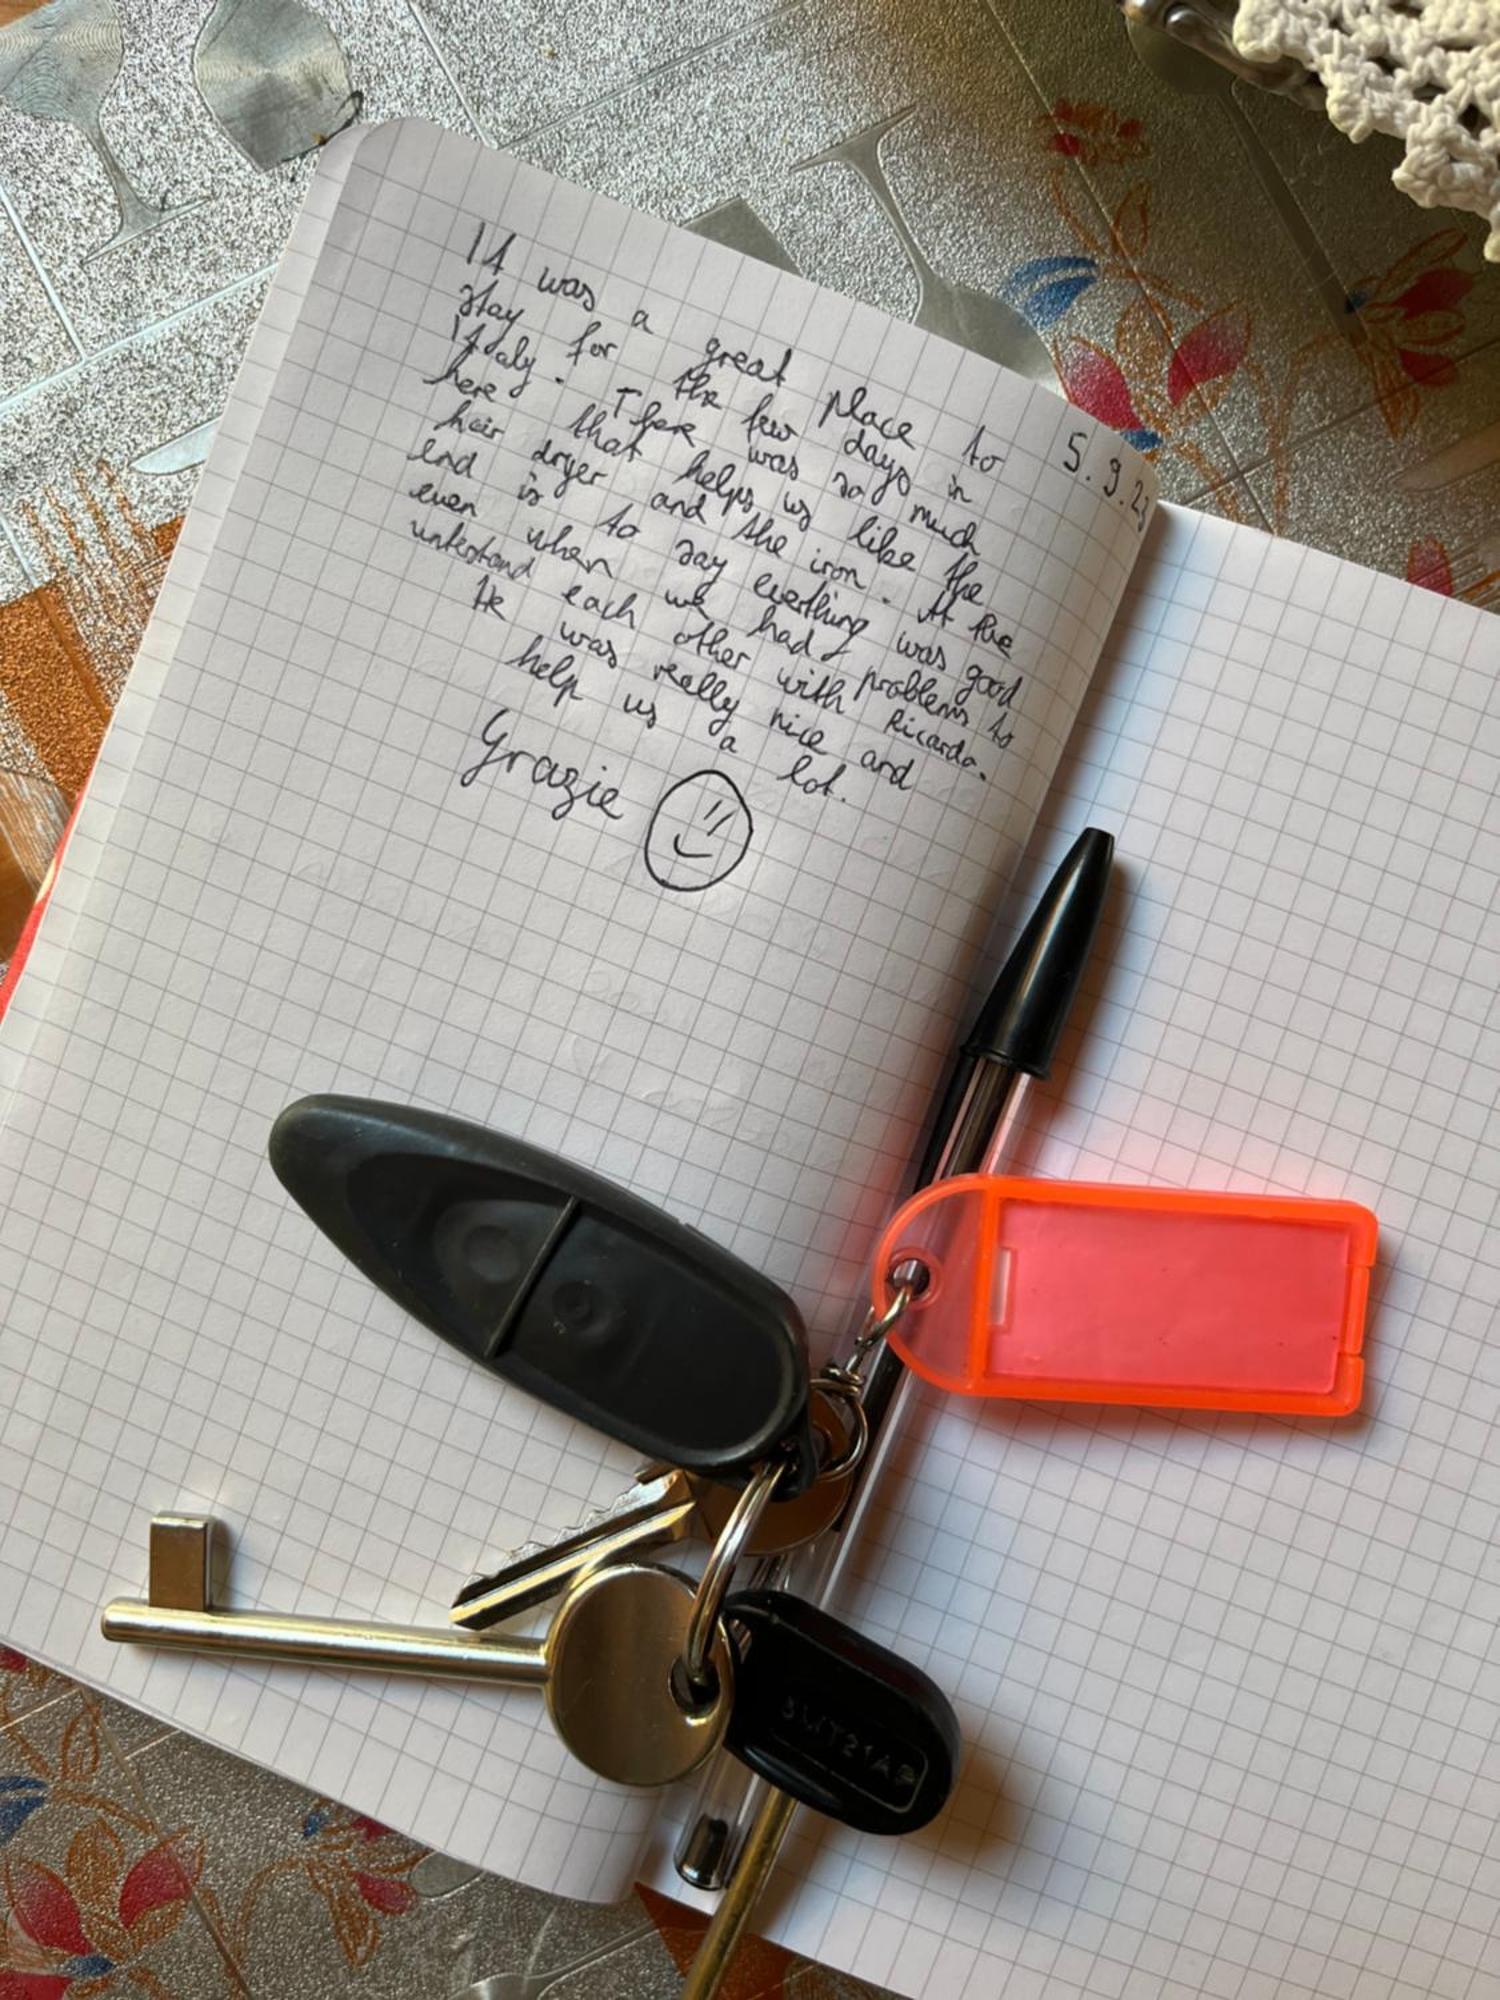 5.9.23
It was a great place to
stay for the few days in
Italy. There was so much
here that helps us like the
hair dryer and the iron. At the
end is to say everthing was good
even when we had problems to
unterstand each other with Ricardo.
He was really nice and
help us a lot.
Grazie